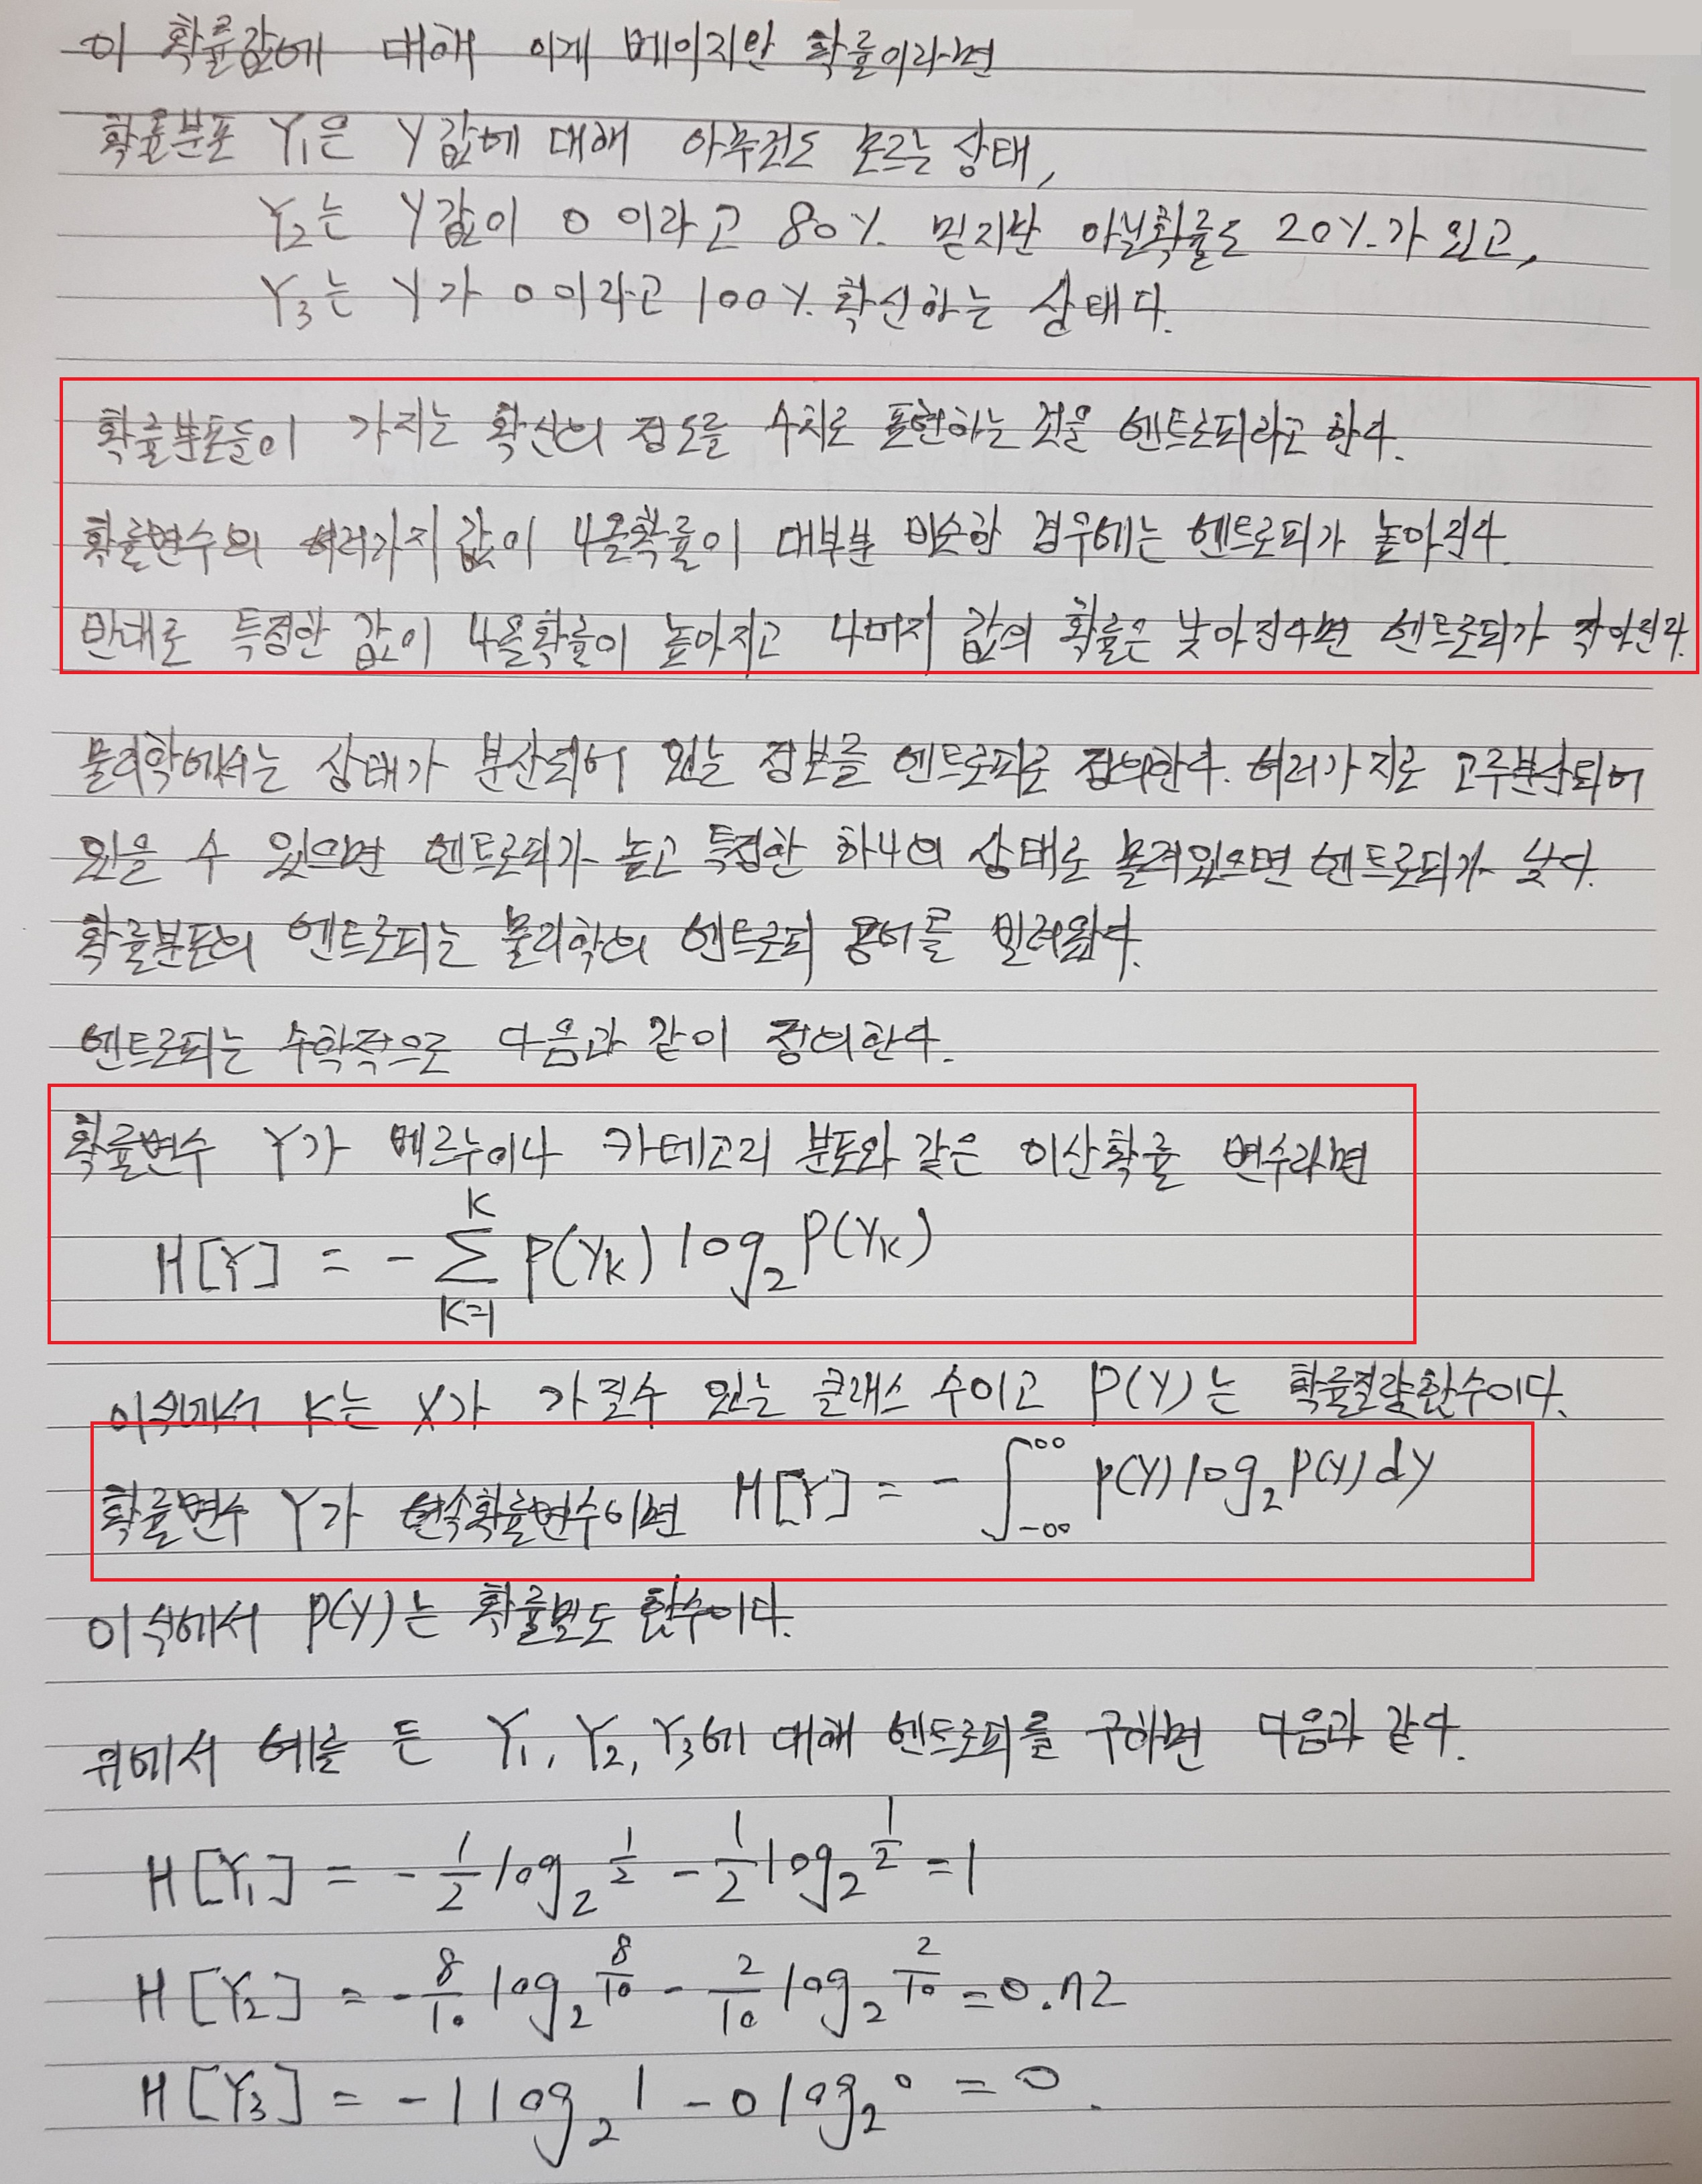 이 확률값에 대해 이게 베이지안 확률이라면
확률분포 Y₁은 Y값에 대해 아무것도 모르는 상태,
Y₂는 Y값이 0 이라고 80% 믿지만 아닐확률도 20%가 있고,
Y₃는 Y가 0이라고 100% 확신하는 상태다.
확률분포들이 가지는 확신의 정도를 수치로 표현하는 것을 엔트로피라고 한다.
확률변수의 여러가지 값이 나올확률이 대부분 비슷한 경우에는 엔트로피가 높아진다.
반대로 특정한 값이 나올확률이 높아지고 나머지 값의 확률은 낮아진다면 엔트로피가 작아진다.
물리학에서는 상태가 분산되어 있는 정보를 엔트로피로 정의한다. 여러가지로 고루분산되어
있을 수 있으면 엔트로피가 높고 특정한 하나의 상태로 몰려있으면 엔트로피가 낮다.
확률분포의 엔트로피는 물리학의 엔트로피 용어를 빌려왔다.
엔트로피는 수학적으로 다음과 같이 정의한다.
확률변수 Y가 베르누이나 카테고리 분포와 같은 이산확률 변수라면
H[Y] = - ∑_{K=1}^{K} P(Y_K) log₂ P(Y_K)
이식에서 K는 X가 가질수 있는 클래스 수이고 P(Y)는 확률질량함수이다.
확률변수 Y가 연속확률변수이면 H[Y] = - ∫_{-∞}^{∞} P(Y) log₂ P(Y) dY
이식에서 P(Y)는 확률밀도 함수이다.
위에서 예를 든 Y₁, Y₂, Y₃에 대해 엔트로피를 구하면 다음과 같다.
H[Y₁] = - 1/2 log₂ 1/2 - 1/2 log₂ 1/2 = 1
H[Y₂] = - 8/10 log₂ 8/10 - 2/10 log₂ 2/10 = 0.72
H[Y₃] = - 1 log₂ 1 - 0 log₂ 0 = 0.